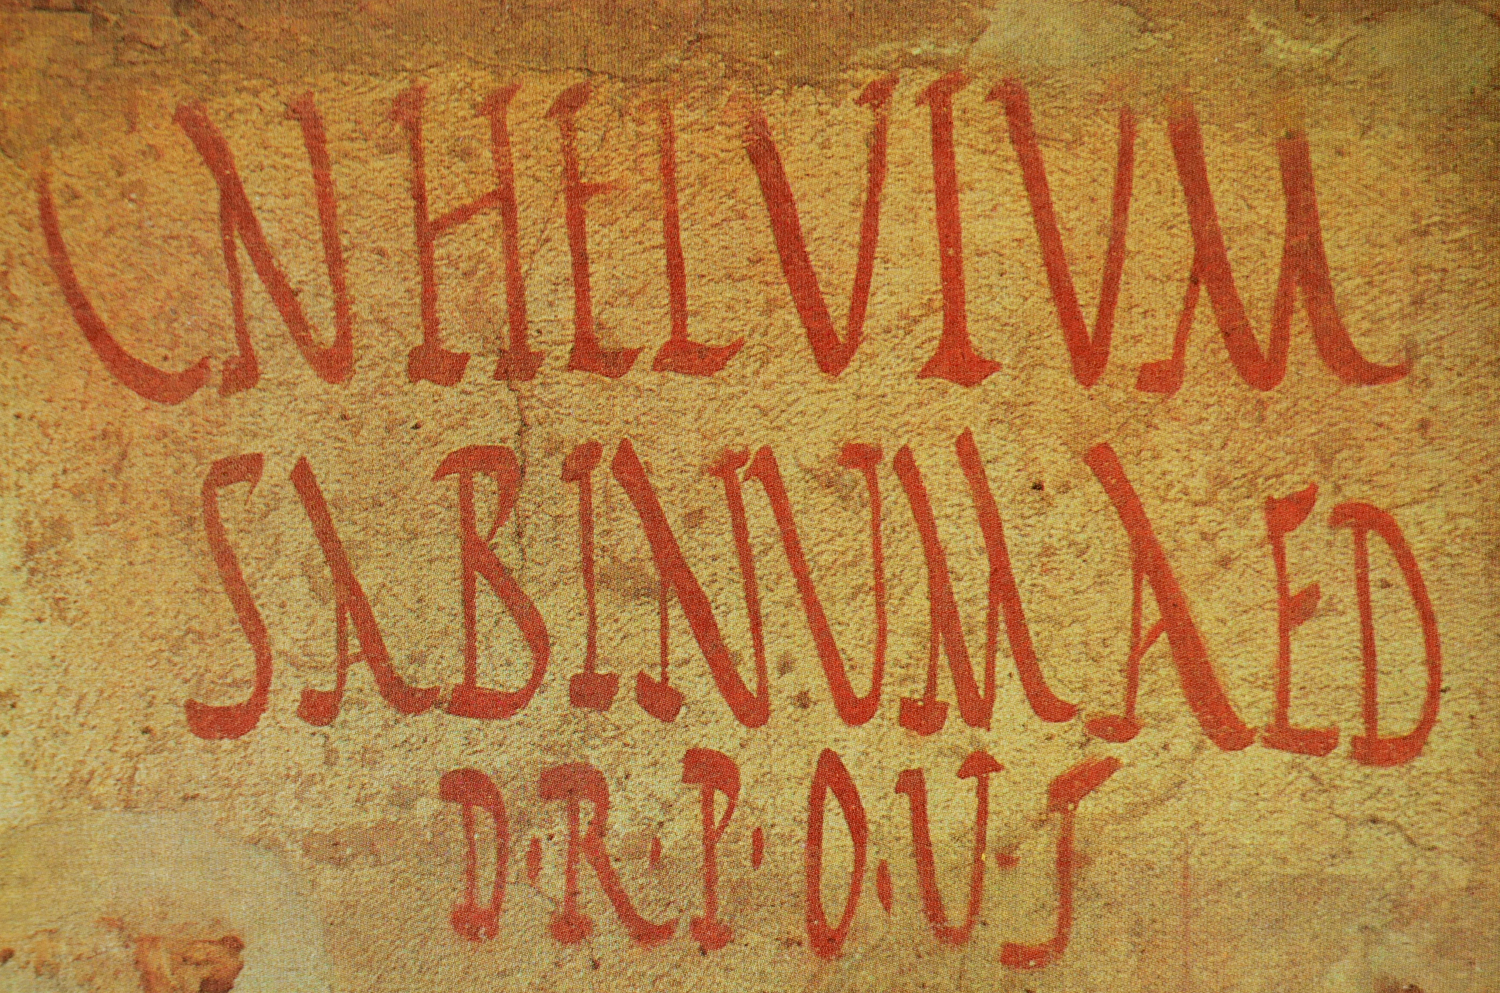 CN HELVIVM
SABINVM AED
D·R·P·O·V·F